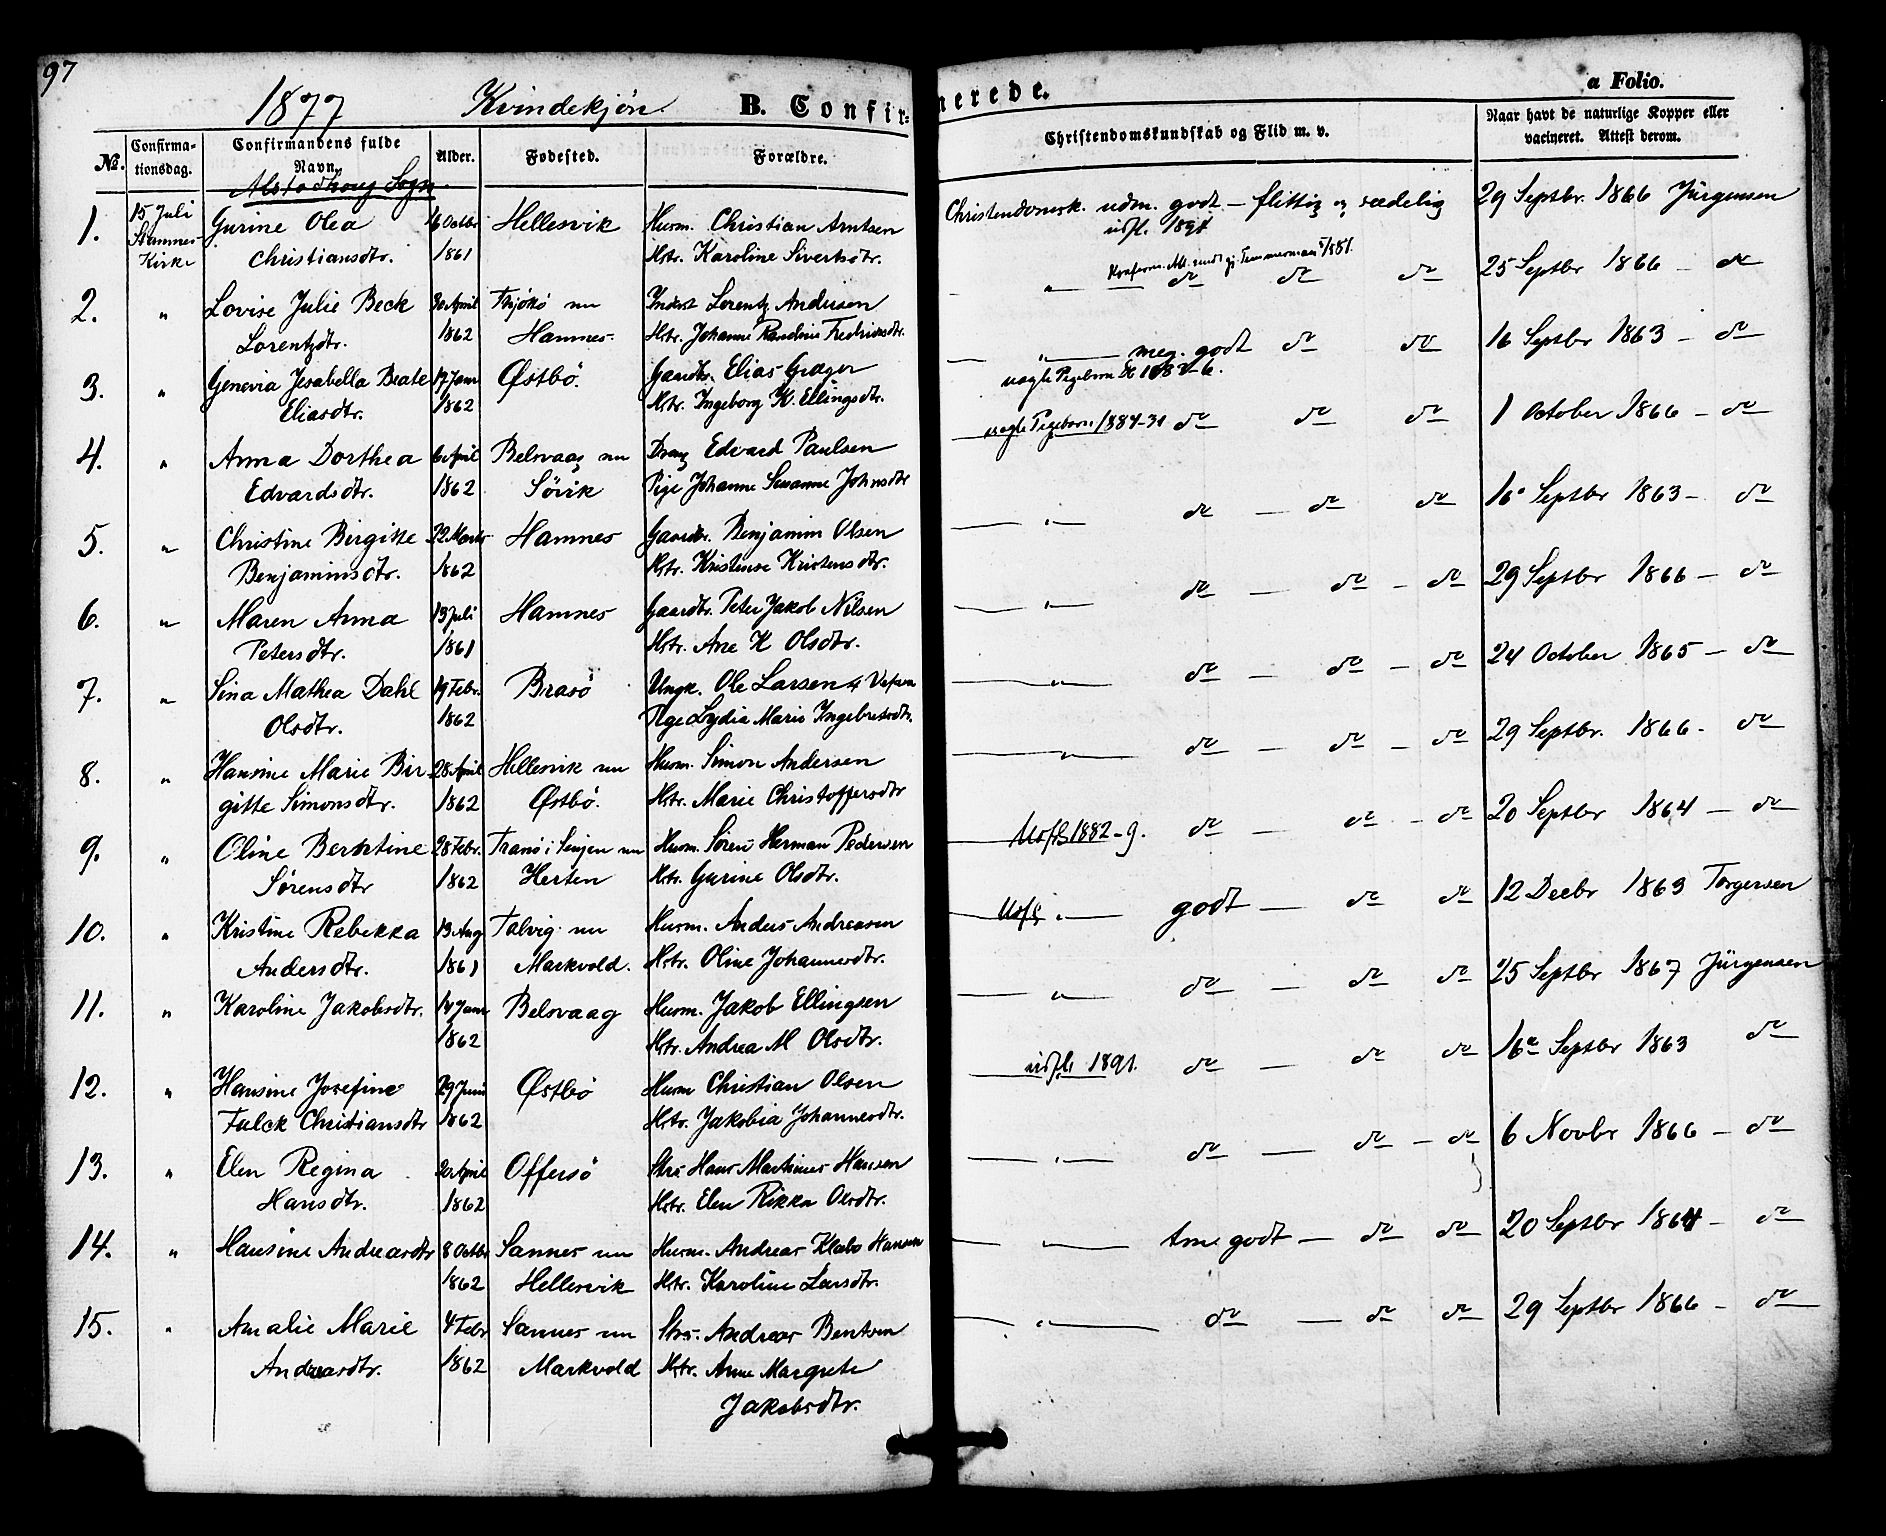 97
1877 Kvindekjøn. B. Confir-
Confirma-
tionsdag.
Confirmandens fulde
Navn.
Alder.
Fødested.
Forældre.
No.
Alstadhoug Sogn
1. 15 Juli Gurine Olea 16 Octbr Hellesvik Husm. Christian Arntsen
Stamnes Christiansdtr. 1861 Hstr. Karoline Sivertsdtr.
Kirke
2. " Lovise Julie Beck 30 April Thjøtø nu Inderst Lorentz Andersen
Lorentzdtr. 1862 Hamnes Hstr. Johanne Randine Fredriksdtr.
3. " Genevia Jesabella Beate 17 Janr Østbø. Gaardbr. Elias Græger
Eliasdtr. 1862 Hstr. Ingeborg K. Ellingsdtr.
4. " Anna Dorthea 6 April Belsvaag nu Dreng Edvard Paulsen
Edvardsdtr. 1862 Søvik Pige Johanne Susanne Johnsdtr
5. " Christine Birgitte 22 Marts Hamnes Gaardbr. Benjamin Olsen
Benjaminsdtr. 1862 Hstr. Kristense Kristensdtr.
6. " Maren Anna 13 Juli Hamnes Gaardbr. Peter Jakob Nilsen
Petersdtr. 1861 Hstr. Ane K Olsdtr.
7. " Sina Mathea Dahl 19 Febr. Brasø Ungk. Ole Larsen af Vefsen
Olsdtr. 1862 Pige Lydia Marie Ingebretsdtr.
8. " Hansine Marie Bir- 28 April Hellesvik nu Husm. Simon Andersen
gitte Simonsdtr. 1862 Østbø. Hstr. Marie Christoffersdtr
9. " Oline Berntine 28 Febr. Tranø i Senjen nu Husm. Søren Herman Pedersen
Sørensdtr 1862 Herten Hstr. Gurine Olsdtr.
10. " Kristine Rebekka 13 Aug Talvig nu Husm. Anders Andreasen
Andersdtr. 1861 Markvold. Hstr. Oline Johannesdtr.
11. " Karoline Jakobsdtr. 14 Janr Belsvaag Husm. Jakob Ellingsen
1862 Hstr. Andrea M Olsdtr.
12. " Hansine Josefine 29 Juni Østbø Husm Christian Olsen
Falck Christiansdtr 1862 Hstr. Jakobia Johannesdtr.
13. " Elen Regina 20 April Offersø Strs. Hans Martinus Hansen
Hansdtr. 1862 Hstr. Elen Rikka Olsdtr.
14. " Hansine Andreasdtr 8 Octbr Sannes nu Husm. Andreas Klabo Hansen
1862 Hellesvik Hstr. Karoline Larsdtr.
15. " Amalie Marie 4 Febr Sannes nu Strs. Andreas Bentsen
Andreasdtr. 1862 Markvold Hstr. Anne Margrete
Jakobsdtr.
nerede.
a Folio.
Christendomskundskab og Flid m. v.
Naar havt de naturlige Kopper eller
vacineret. Attest derom.
Christendomsk. udm. godt – flittig og sædelig 29 Septbr. 1866 Jürgensen
udfl. 1891
1881.
" do do do 25 Septbr 1866 – do
" meg. godt do do 16 Septbr 1863 – do
do do do 1 October 1866 – do
" do – do do 16 Septbr 1863 – do
" do – do – do 29 Septbr 1866 – do
" do – do – do 24 October 1865 – do
" do – do – do 29 Septbr. 1866 – do
Udfl 1882-9. do – do – do 20 Septbr 1864 – do
Udfl " godt – do do 12 Decbr 1863 Torgersen
" do – do do 25 Septbr 1867 Jürgensen
udfl. 1891. do – do do 16 Septbr 1863 do
" do – do – do 6 Novbr 1866 – do
" tem. godt – do do 20 Septbr 1864 – do
" do – do do 29 Septbr 1866 – do